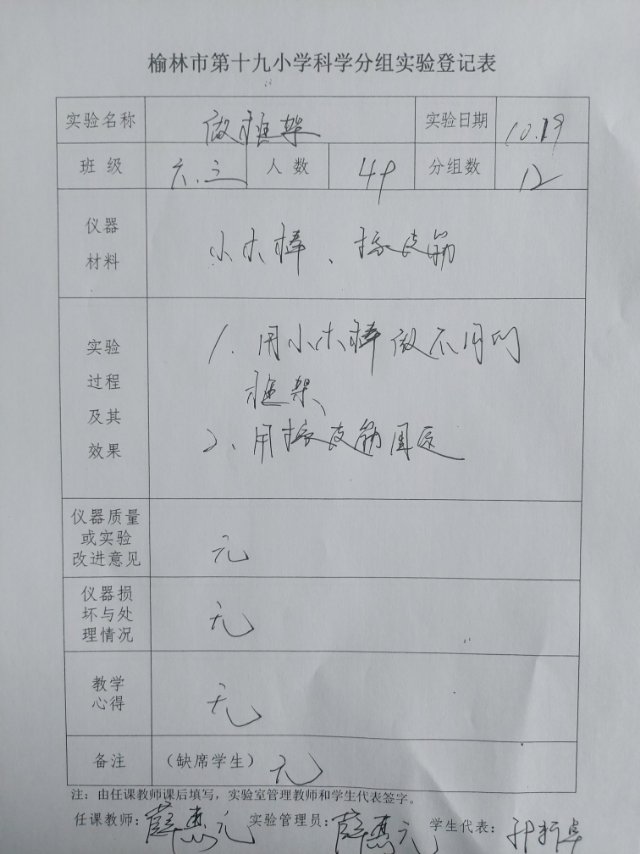 榆林市第十九小学科学分组实验登记表
实验名称 做框架 实验日期 10.19
班级 六.三 人数 49 分组数 12
仪器材料 小木棒、橡皮筋
实验过程及其效果 1.用小木棒做不同的
框架
2、用橡皮筋固定
仪器质量或实验改进意见 无
仪器损坏与处理情况 无
教学心得 无
备注 (缺席学生) 无
注:由任课教师课后填写,实验室管理教师和学生代表签字。
任课教师: 薛惠元 实验管理员: 薛惠元 学生代表: